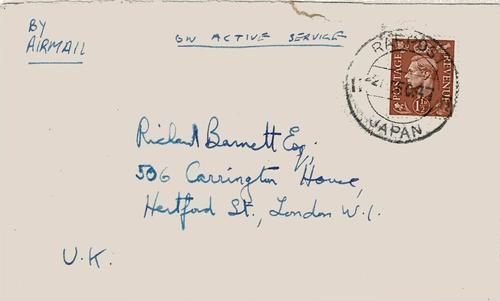 BY
AIRMAIL
ON ACTIVE SERVICE
POSTAGE REVENUE
1½
JAPAN
Richard Barnett Esq,
506 Carrington House,
Hertford St., London W.1.
U.K.